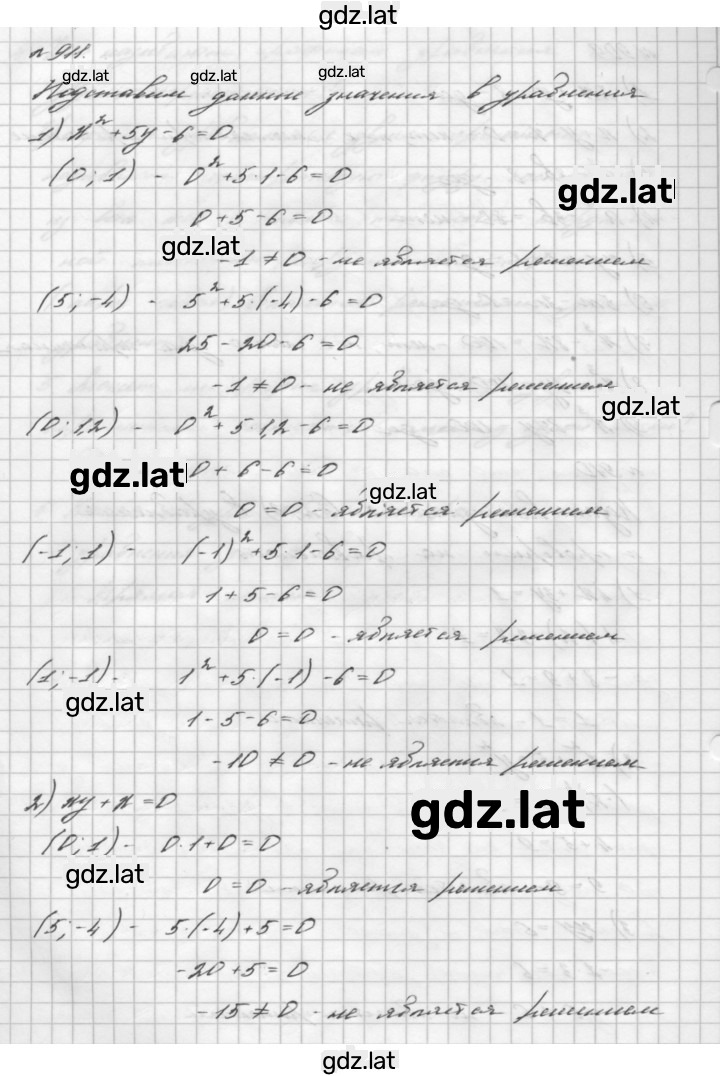 gdz.lat
n 911.
gdz.lat gdz.lat gdz.lat
Подставим данные значения в уравнения
1) x² + 5y - 6 = 0
(0; 1) - 0² + 5·1 - 6 = 0
gdz.lat
0 + 5 - 6 = 0
gdz.lat
-1 ≠ 0 - не является решением
(5; -4) - 5² + 5·(-4) - 6 = 0
25 - 20 - 6 = 0
-1 ≠ 0 - не является решением
gdz.lat
(0; 1,2) - 0² + 5·1,2 - 6 = 0
gdz.lat 0 + 6 - 6 = 0
gdz.lat
0 = 0 - является решением
(-1; 1) - (-1)² + 5·1 - 6 = 0
1 + 5 - 6 = 0
0 = 0 - является решением
(1; -1) - 1² + 5·(-1) - 6 = 0
gdz.lat
1 - 5 - 6 = 0
-10 ≠ 0 - не является решением
2) xy + x = 0
gdz.lat
(0; 1) - 0·1 + 0 = 0
gdz.lat
0 = 0 - является решением
(5; -4) - 5·(-4) + 5 = 0
-20 + 5 = 0
-15 ≠ 0 - не является решением
gdz.lat